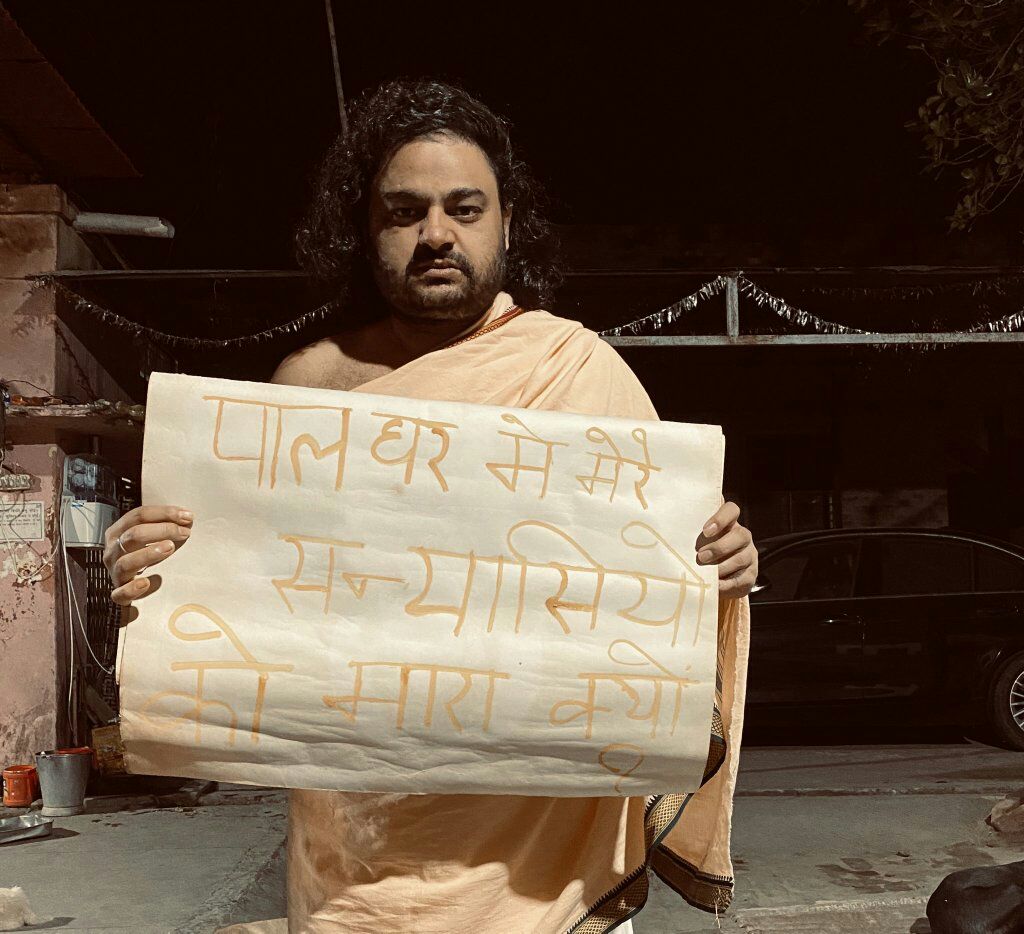 पालघर मे मेरे
सन्यासियो
को मारा क्यों
?